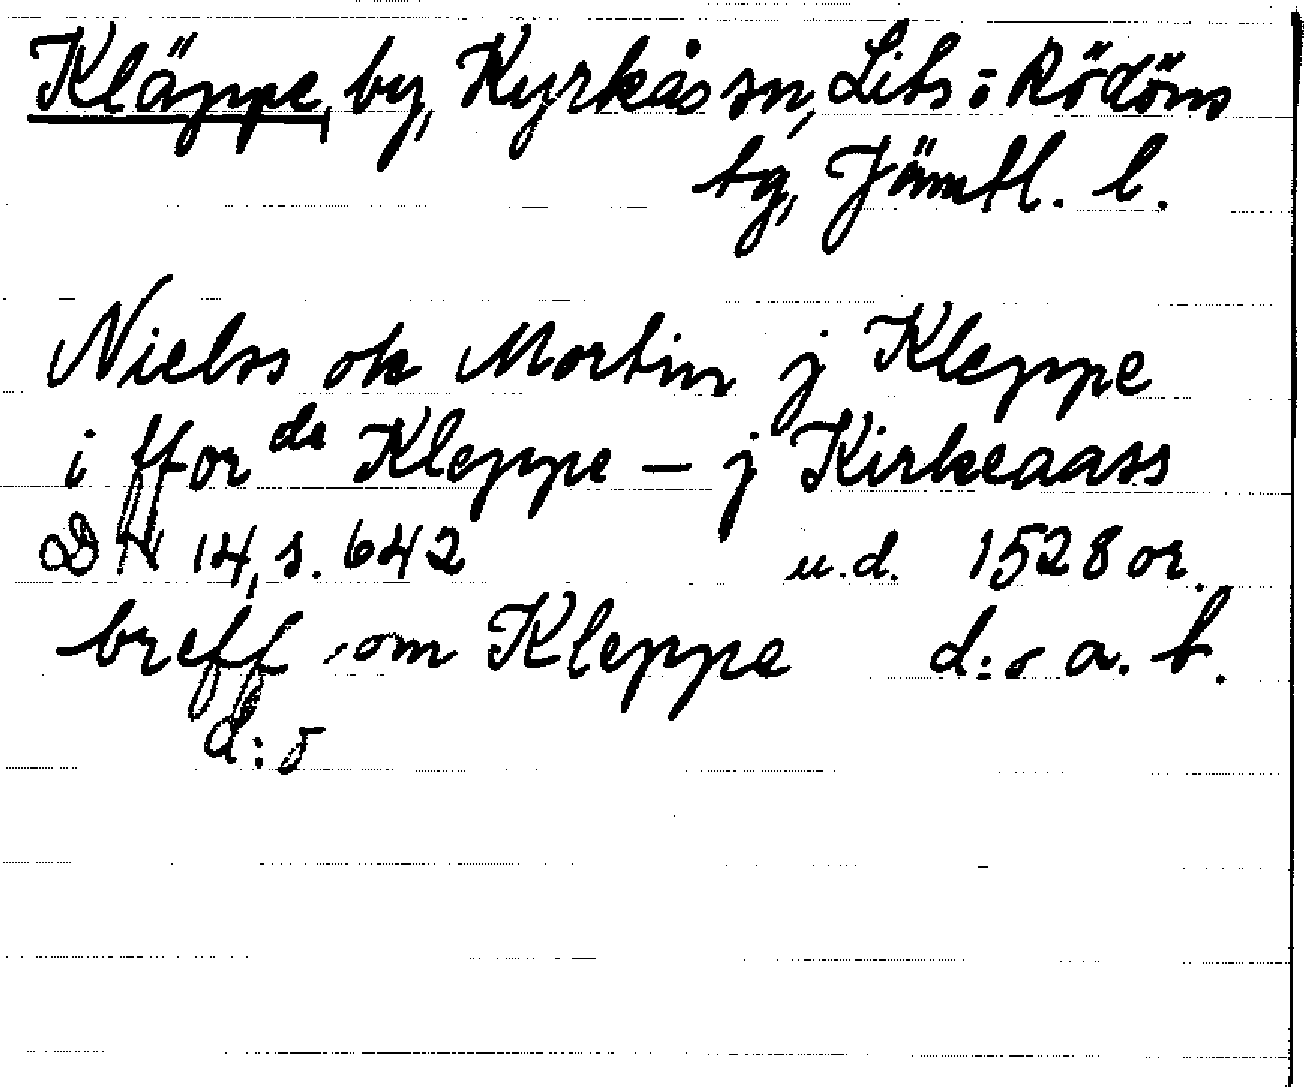 Kläppe, by, Kyrkås sn, Lits o Rödöns
tg, Jämtl. l.
Nielss ok Mortin j Kleppe
i fforde Kleppe – j Kirkeaass
DN 14, s. 642 u.d. 1528 or.
breff om Kleppe d:o a. b.
d:o